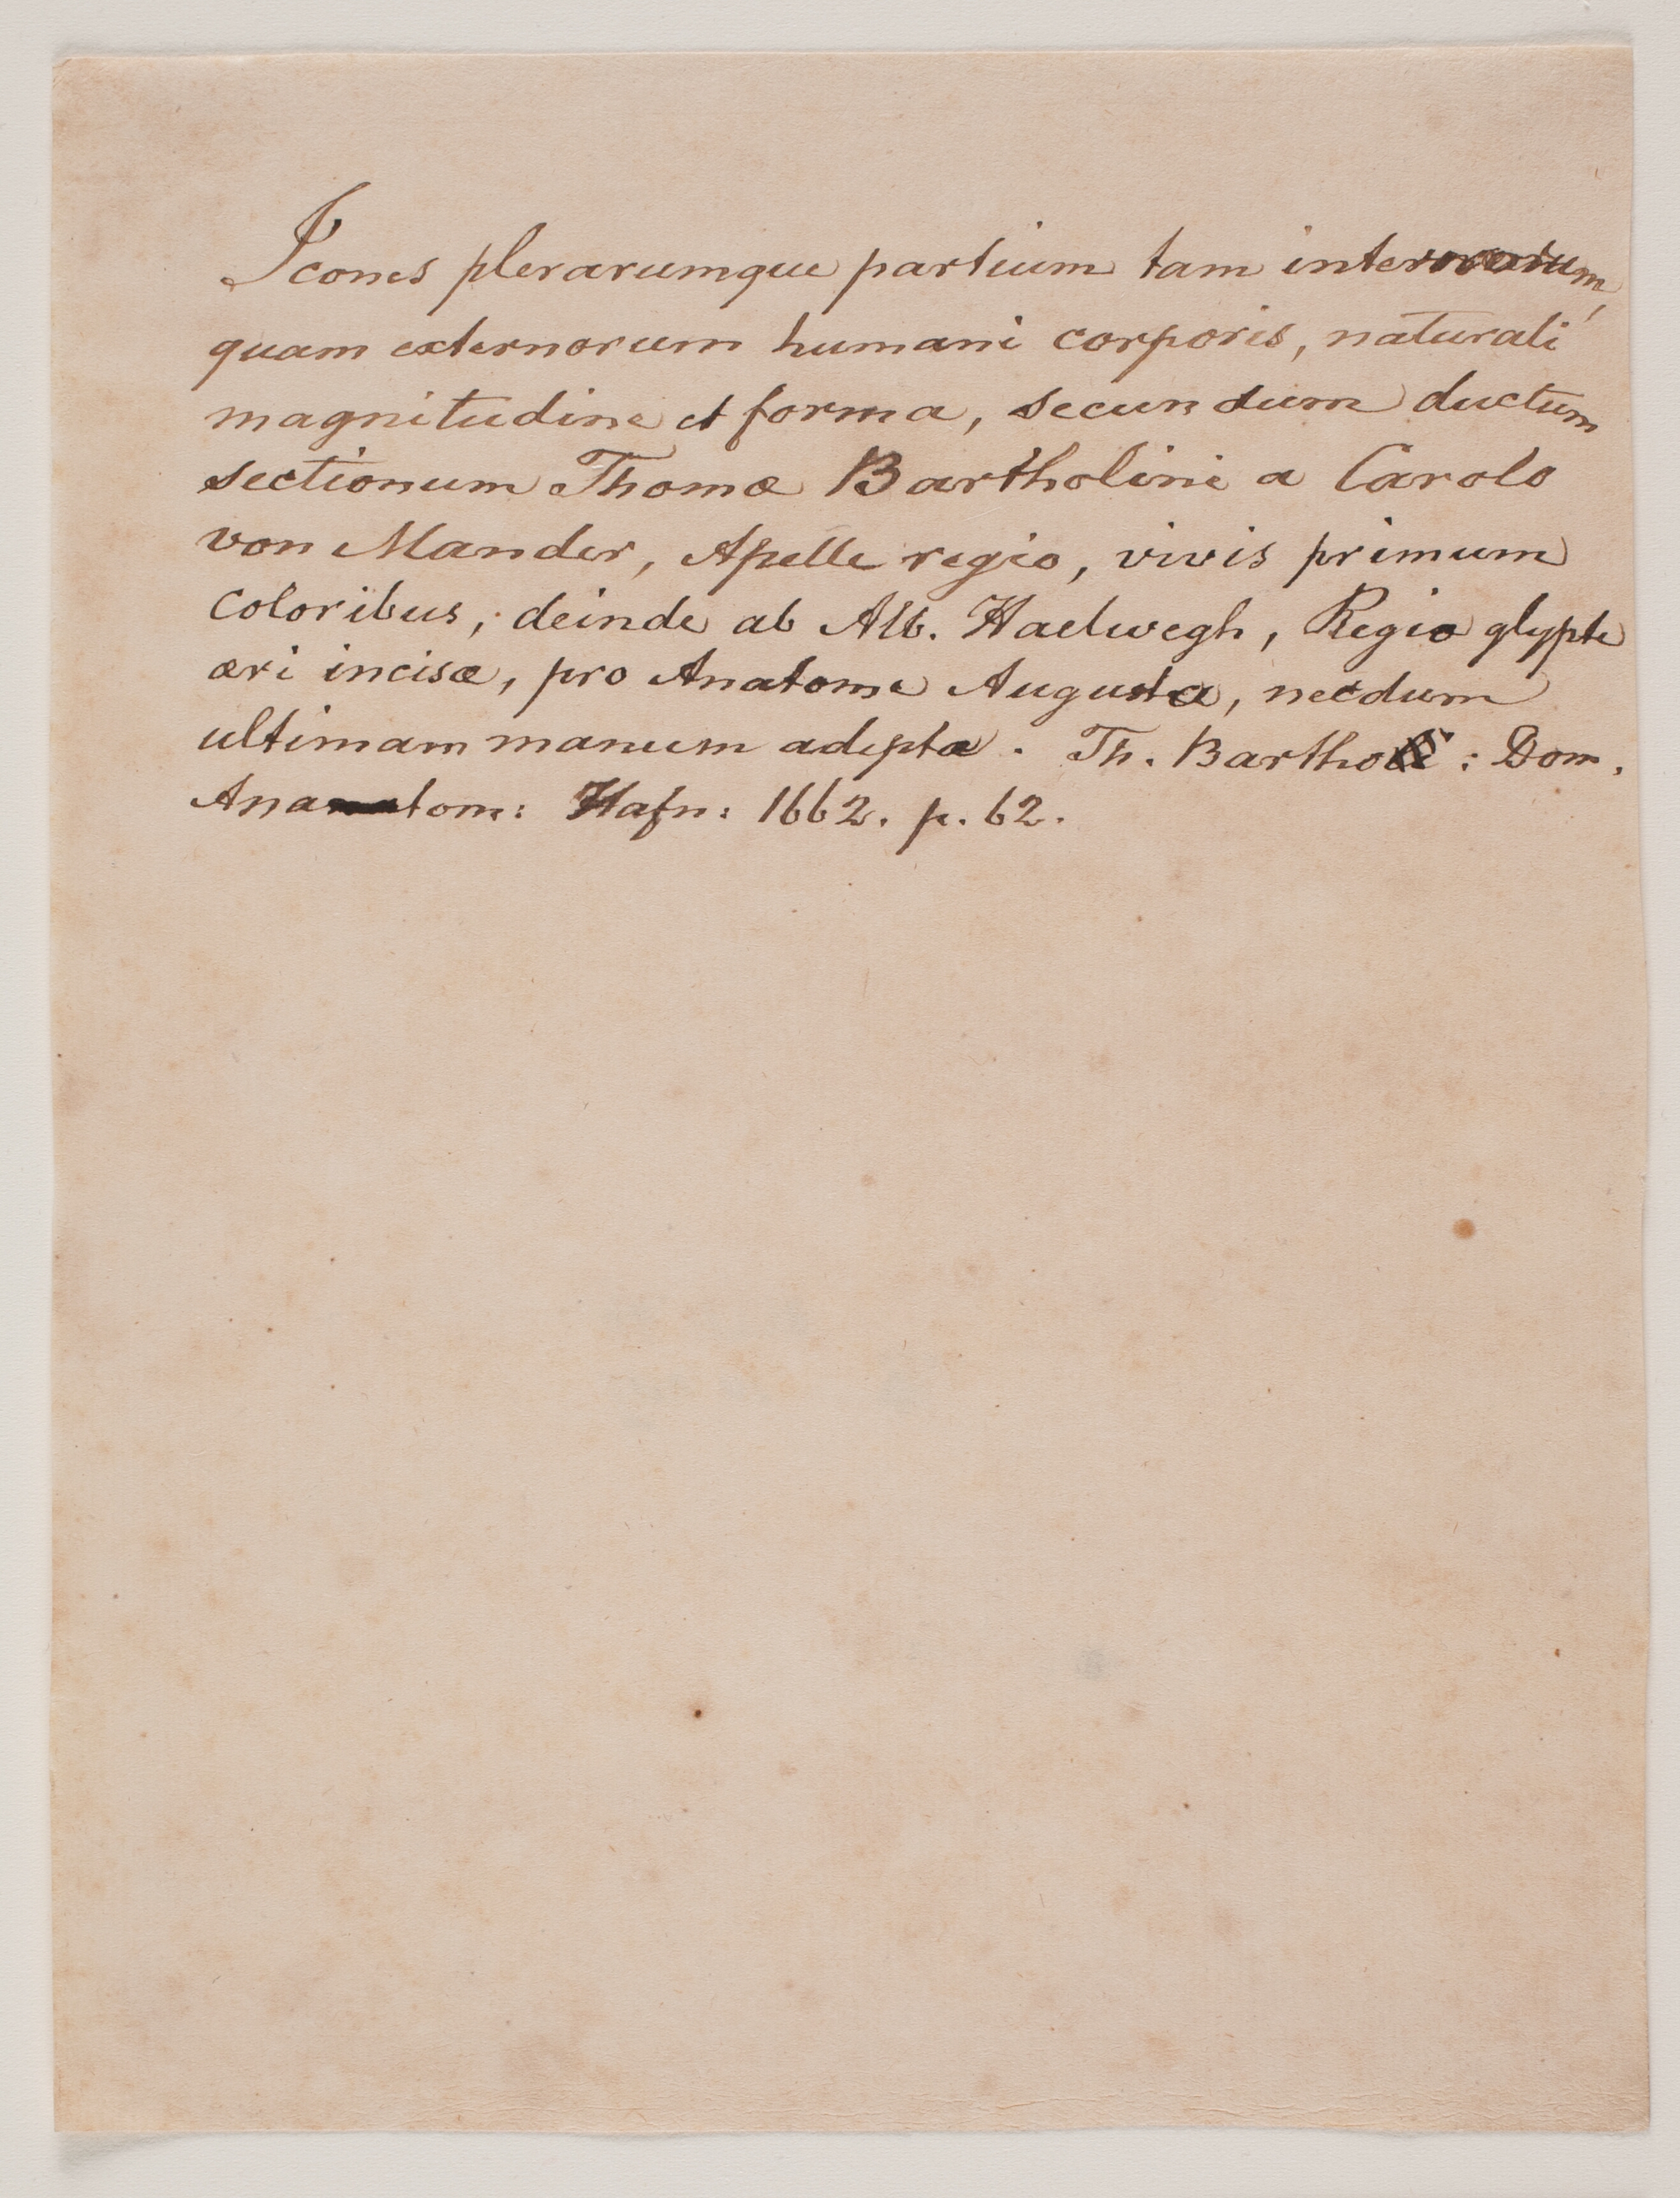 Icones plerarumque partium tam internorum,
quam externorum humani corporis, naturali
magnitudine et forma, secundum ductum
sectionum Thomæ Bartholini a Carolo
von Mander, Apelle regio, vivis primum
coloribus, deinde ab Alb. Haelwegh, Regio glypte
æri incisæ, pro Anatome Augusta, necdum
ultimam manum adeptæ. Th. Barthol: Dom.
Anatom: Hafn: 1662. p. 62.